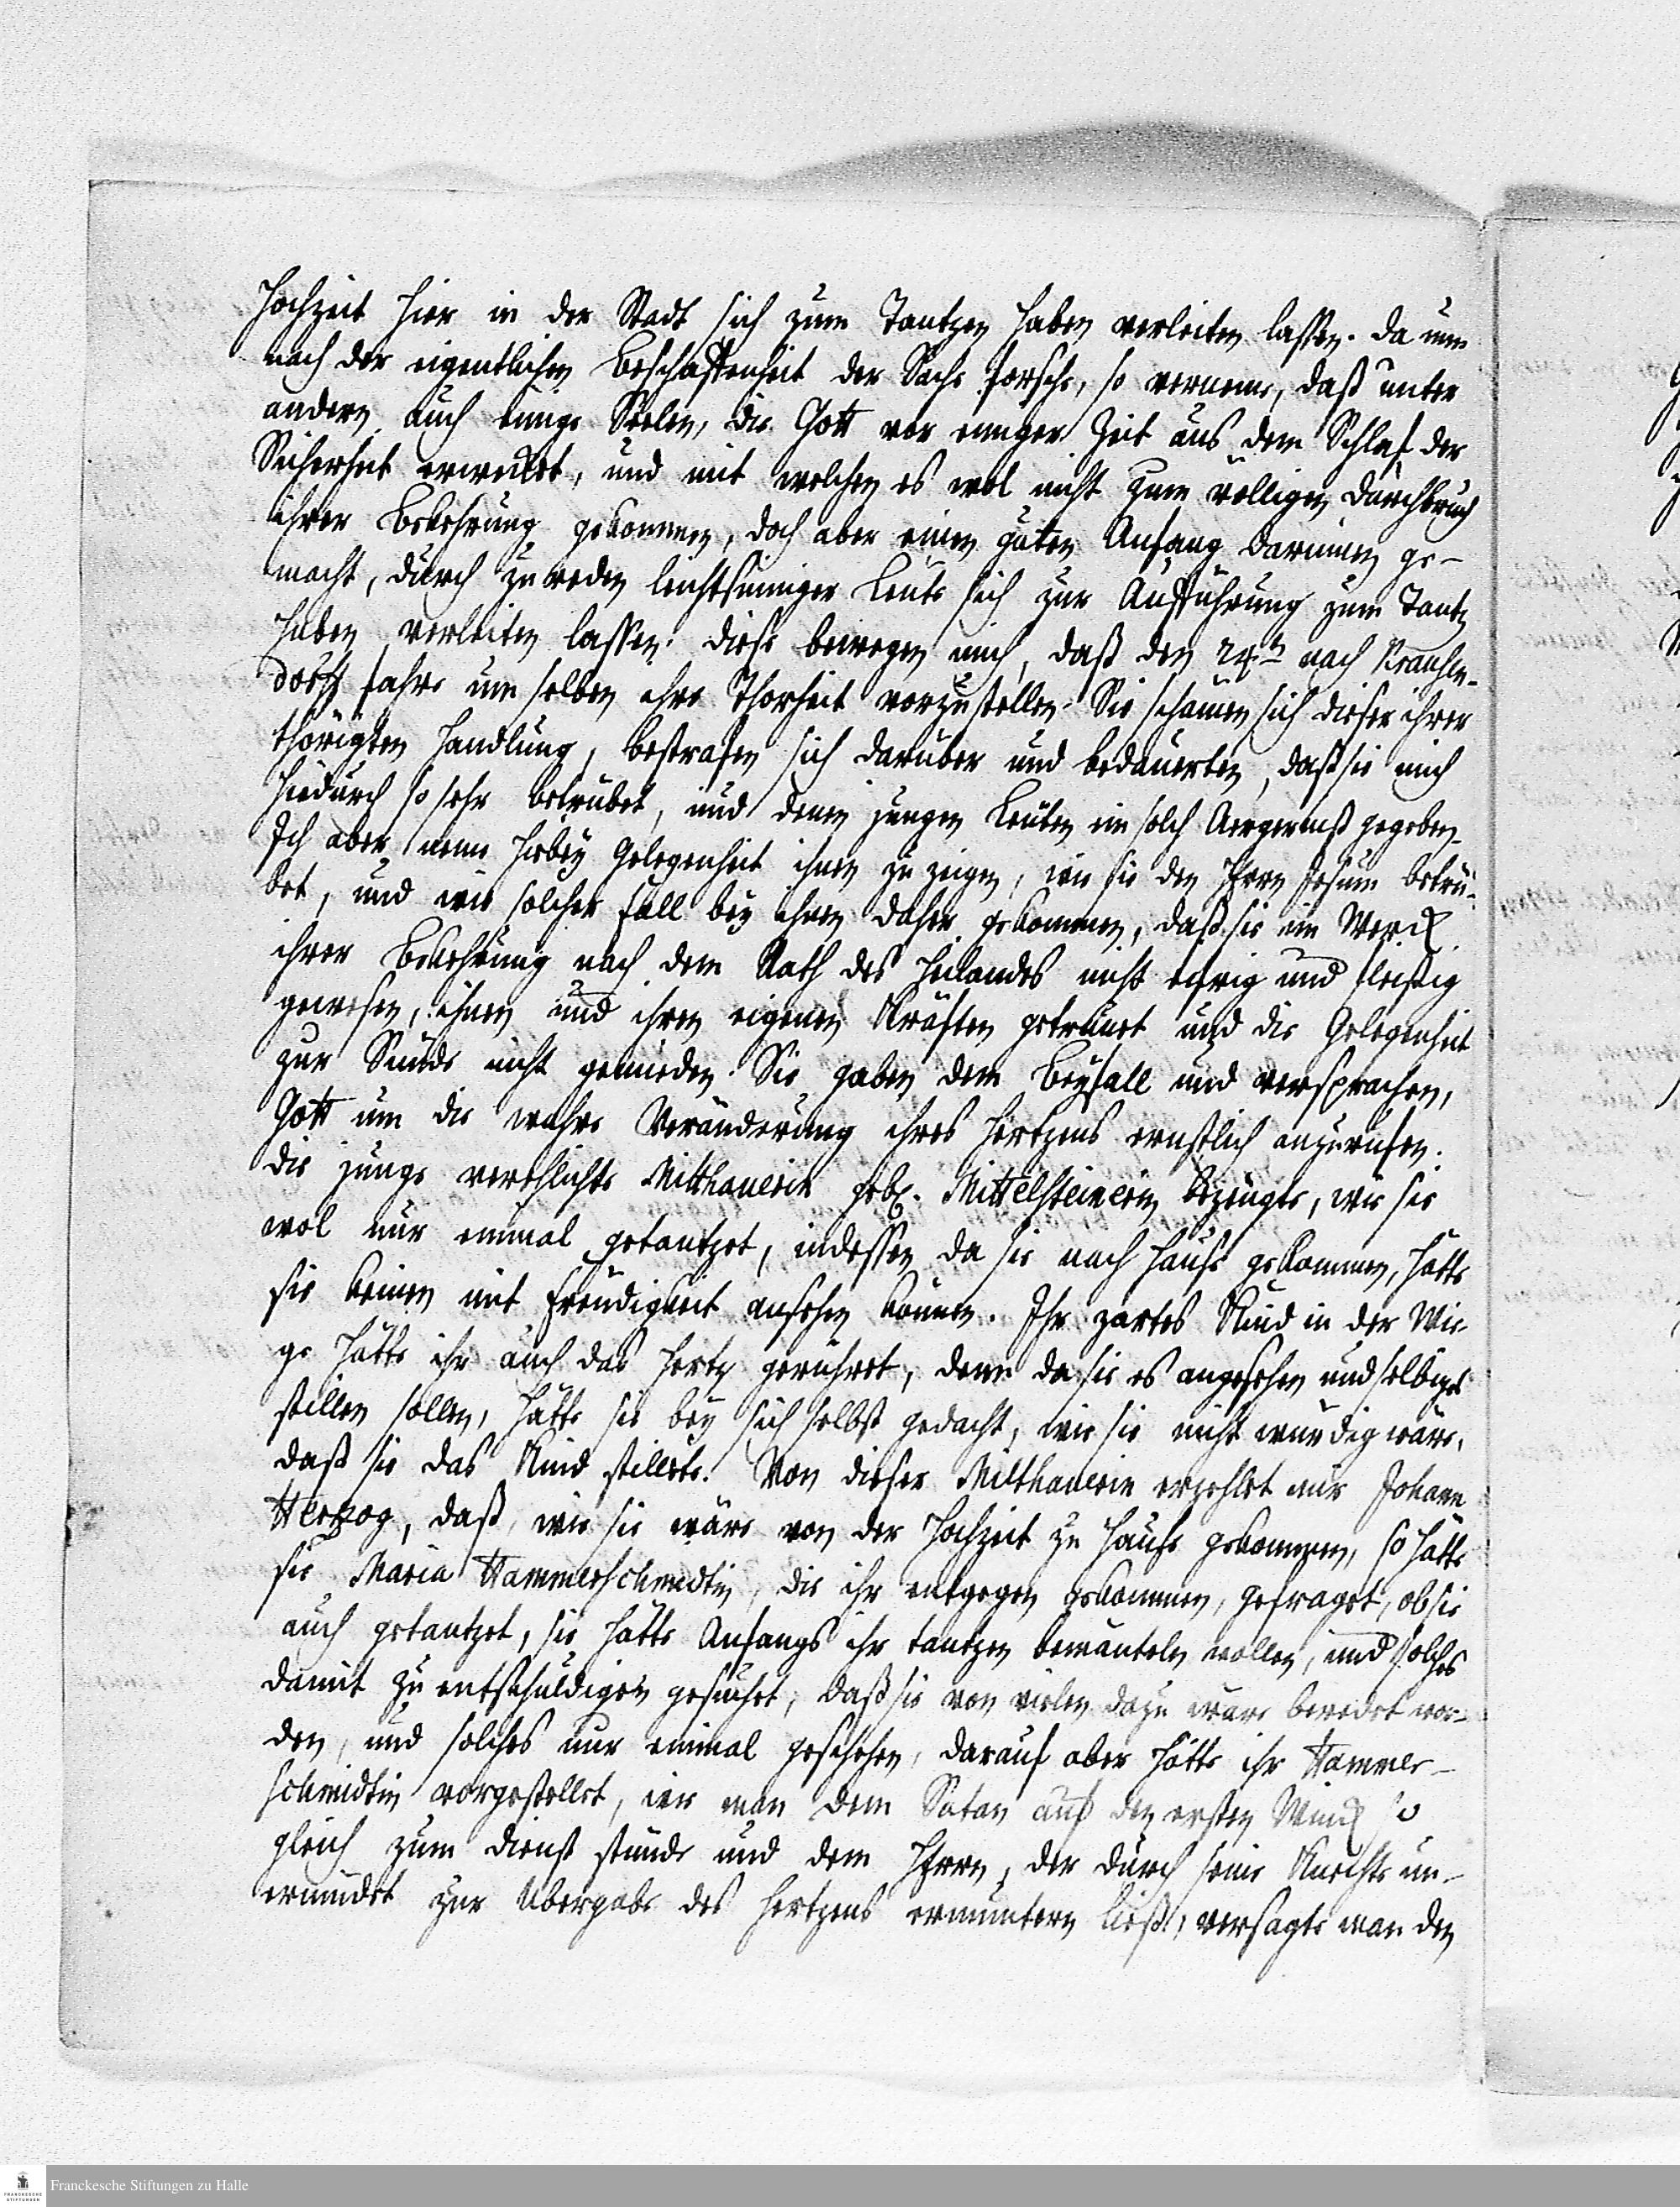 Hochzeit hier in der Stadt sich zum Tantzen haben verleiten lassen. Da nun
nach der eigentlichen Beschaffenheit der Sache forsche, so verneme, daß unter
andern auch einige Seelen, die Gott vor einiger Zeit aus dem Schlaf der
Sicherheit erwecket, und mit welchen es wol nicht zum völligen Durchbruch
ihrer Bekehrung gekommen, doch aber einen guten Anfang darinnen ge-
macht, durch zureden leichtsinniger Leute sich zur Aufführung zum Tantz
haben verleiten lassen. Diese bewegen mich, daß den 24ten nach
dorff fahre um selben ihre Thorheit vorzustellen. Sie schämen sich dieser ihrer
thörigten Handlung, bestrafen sich darüber und bedauerten, daß sie mich
hiedurch so sehr betrübet, und denen jungen Leuten ein solch Aergerniß gegeben.
Ich aber nem hirbey Gelegenheit ihnen zu zeigen, wie sie den HErrn Jesum betrü-
bet, und wie solcher Fall bey ihnen daher gekommen, daß sie im Werck
ihrer Bekehrung nach dem Rath des Heilandes nicht eifrig und fleißig
gewesen, ihnen und ihren eigenen Kräften getrauet und die Gelegenheit
zur Sünde nicht gemieden. Sie gaben dem Beyfall und versprachen,
Gott um die wahre Veränderung ihres Hertzens ernstlich anzurufen.
Die junge verehlichte Mitthauerin geb. Mittelsteinerin bezeuget, wie sie
wol nur einmal getantzet, indessen da sie nach Hause gekommen, hätte
sie keinen mit Freudigkeit ansehen können. Ihr zartes Kind in der Wie-
ge hätte ihr auch das Hertz gerühret, denn da sie es angesehen und selbiges
stillen sollen, hätte sie bey sich selbst gedacht, wie sie nicht würdig wäre,
daß sie das Kind stillete. Von dieser Mitthauerin erzehlet mir Johann
Herzog, daß, wie sie wäre von der Hochzeit zu Hause gekommen, so hätte
sie Maria Hammerschmidtin, die ihr entgegen gekommen, gefraget, ob sie
auch getantzet, sie hätte Anfangs ihr tantzen bemänteln wollen, und solches
damit zu entschuldigen gesuchet, daß sie von vielen dazu wäre beredet wor-
den, und solches nur einmal geschehen, darauf aber hätte ihr Hammer-
schmidtin vorgestellet, wie man dem Satan auf den ersten Winck so
gleich zum Dienst stünde und dem HErrn, der durch seine Knechte un-
ermüdet zur Übergabe des Hertzens ermuntern ließ, versagte man den
Franckesche Stiftungen zu Halle